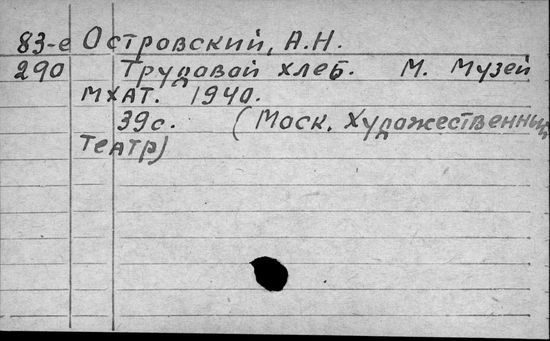 83-е Островский, А.Н.
290 Трудовой хлеб. М. Музей
МХАТ. 1940.
39с. (Моск. Художественный
театр)